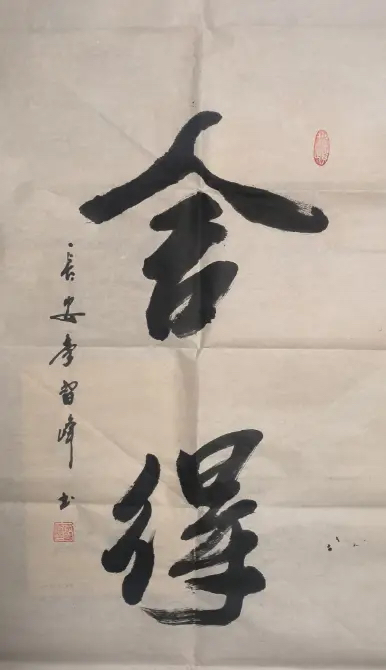 舍得
長安李智峰书